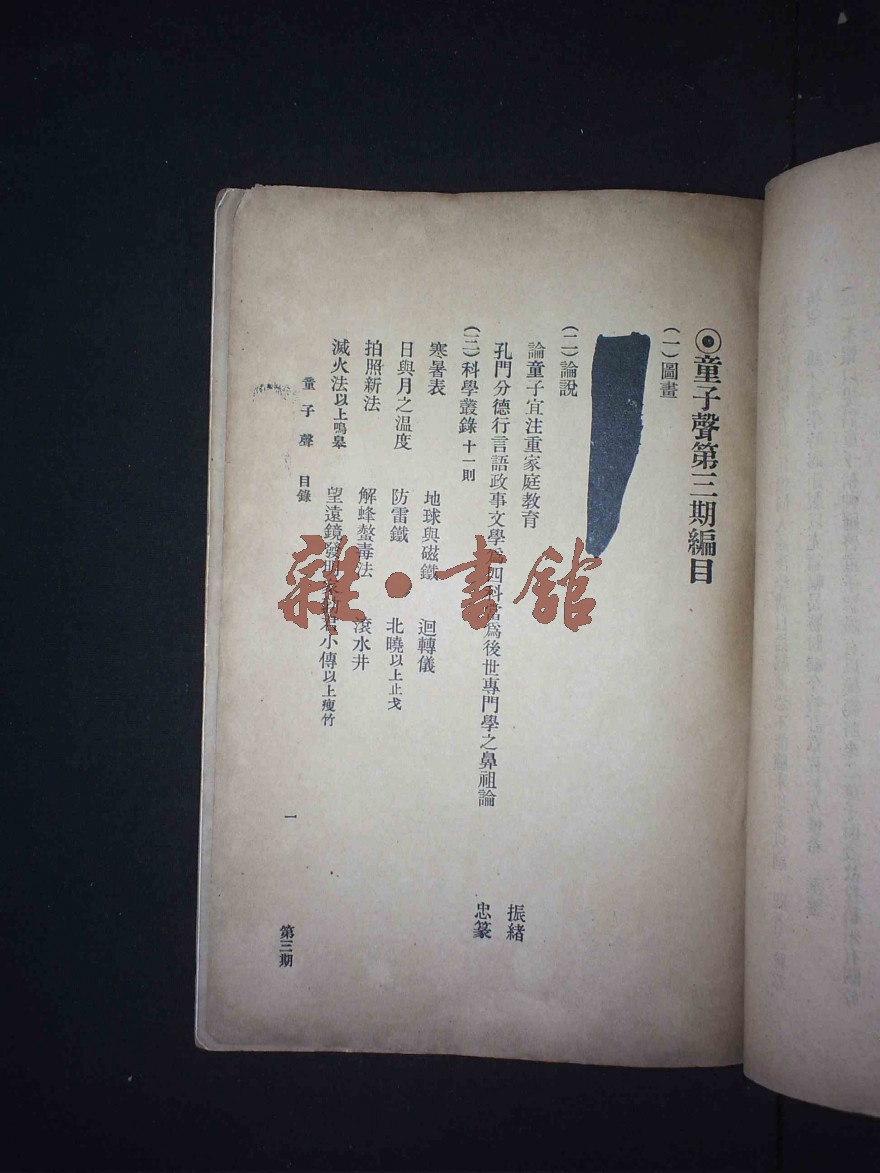 ◉童子聲第三期編目
（一）圖畫
（二）論說
論童子宜注重家庭教育 振緒
孔門分德行言語政事文學爲四科當爲後世專門學之鼻祖論 忠篆
（三）科學叢錄 十一則
寒暑表 地球與磁鐵 迴轉儀
日與月之温度 防雷鐵 北曉以上止戈
拍照新法 解蜂螫毒法 滾水井
滅火法以上鳴皋 望遠鏡發明家 小傳以上瘦竹
童子聲 目錄 一 第三期
雜·書館